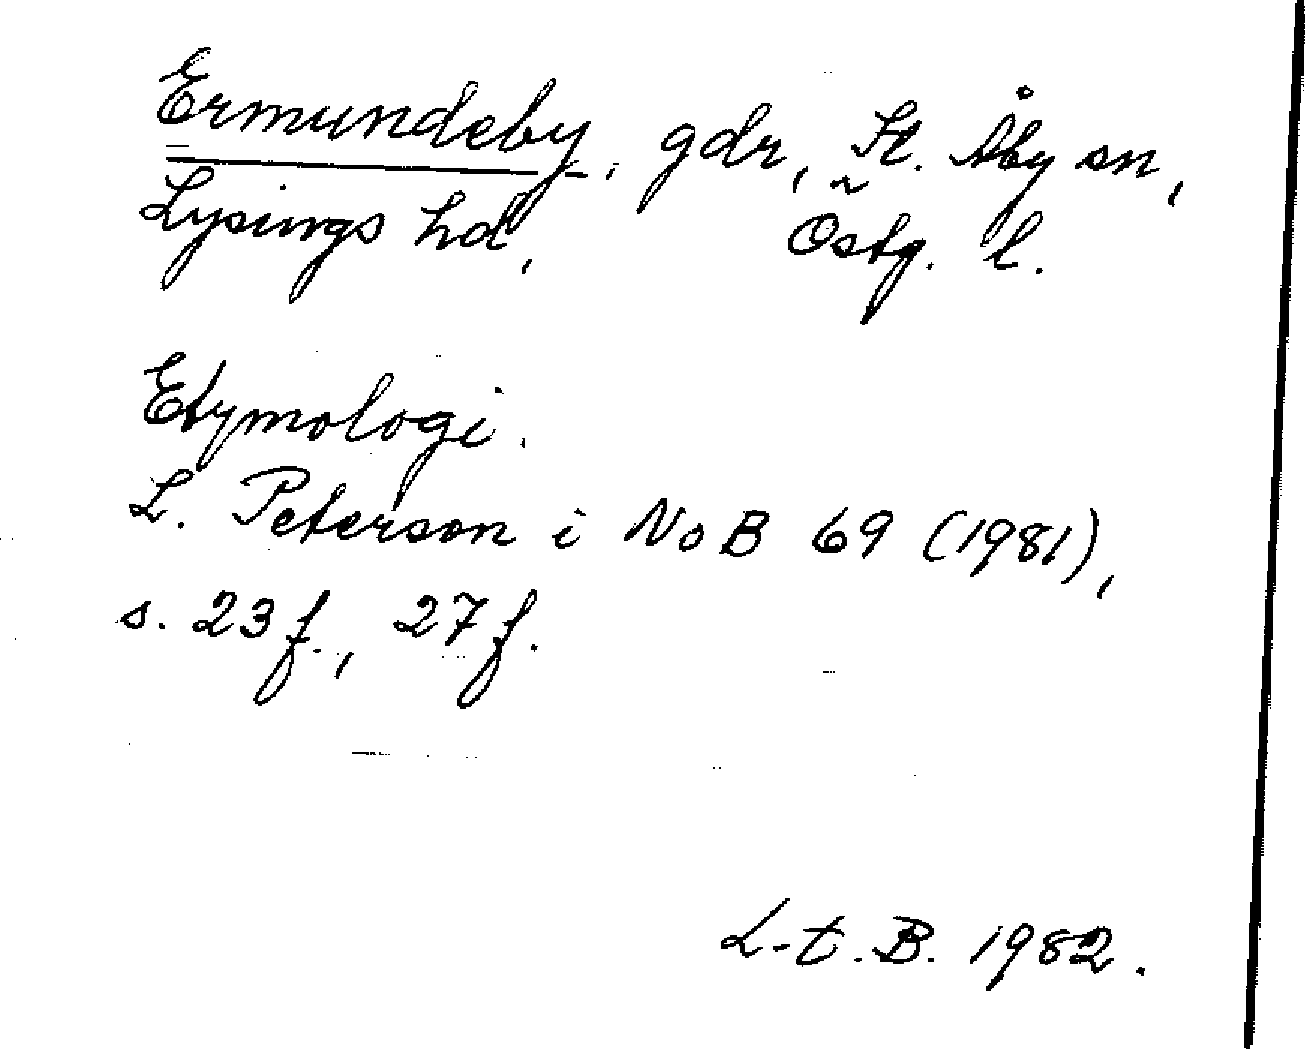 Ermundeby, gdr, St. Åby sn,
Lysings hd, Östg. l.
Etymologi.
L. Peterson i NoB 69 (1981),
s. 23 f., 27 f.
L-t. B. 1982.